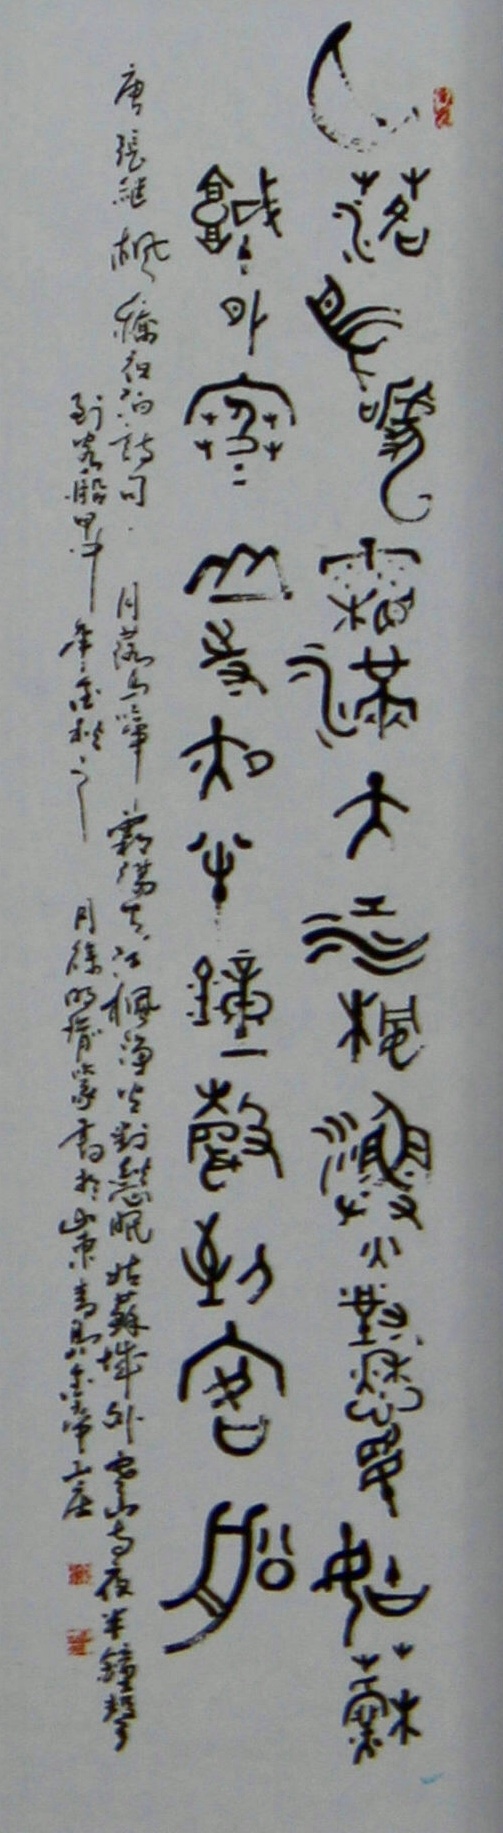 月落烏啼霜滿天江楓漁火對愁眠姑蘇
城外寒山寺夜半鐘聲到客船
唐張継楓橋夜泊詩句月落烏啼霜滿天江楓漁火對愁眠姑蘇城外寒山寺夜半鐘聲
到客船甲午年金秋之月徐明篆書於山東青島金帝山庄